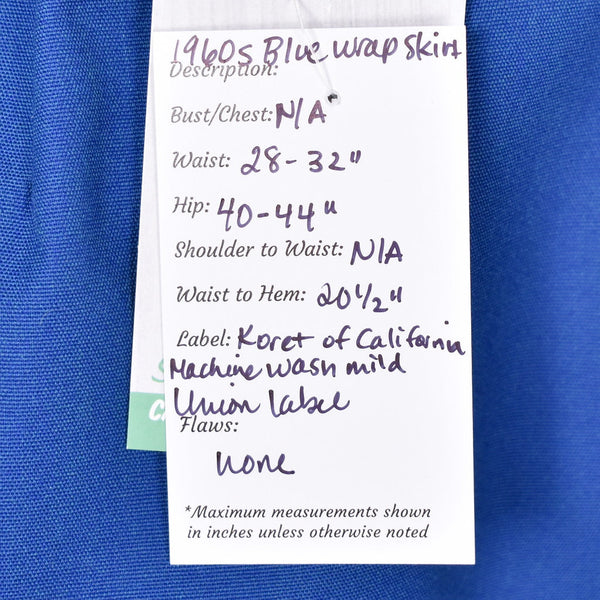 1960s Blue wrap skirt
Description:
Bust/Chest: N/A
Waist: 28-32"
Hip: 40-44"
Shoulder to Waist: N/A
Waist to Hem: 20 1/2"
Label: Koret of California
Machine wash mild
Union label
Flaws:
none
*Maximum measurements shown
in inches unless otherwise noted